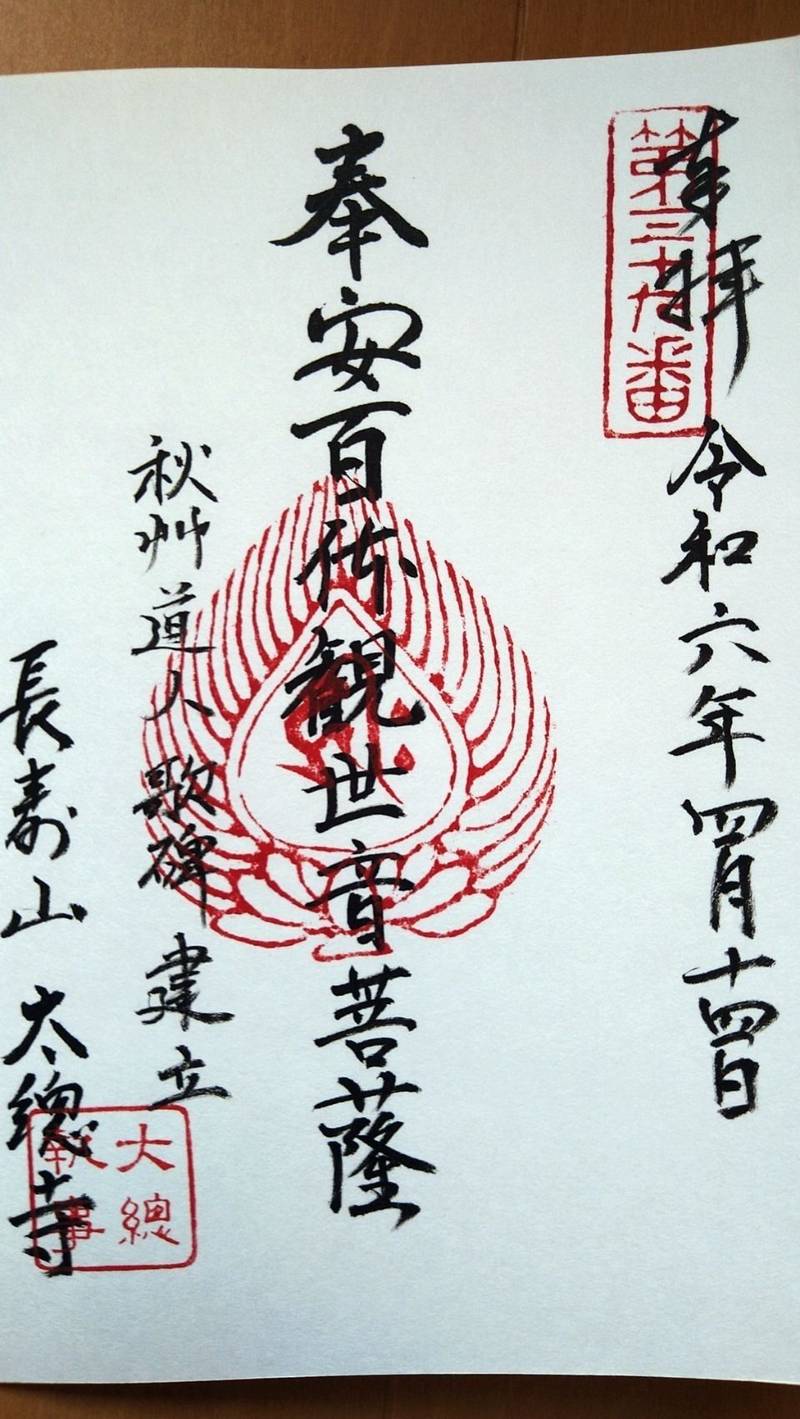 奉拝 令和六年四月十四日
第三十九番
奉安百体観世音菩薩
秋艸道人歌碑建立
長寿山 大總寺
大總
執事